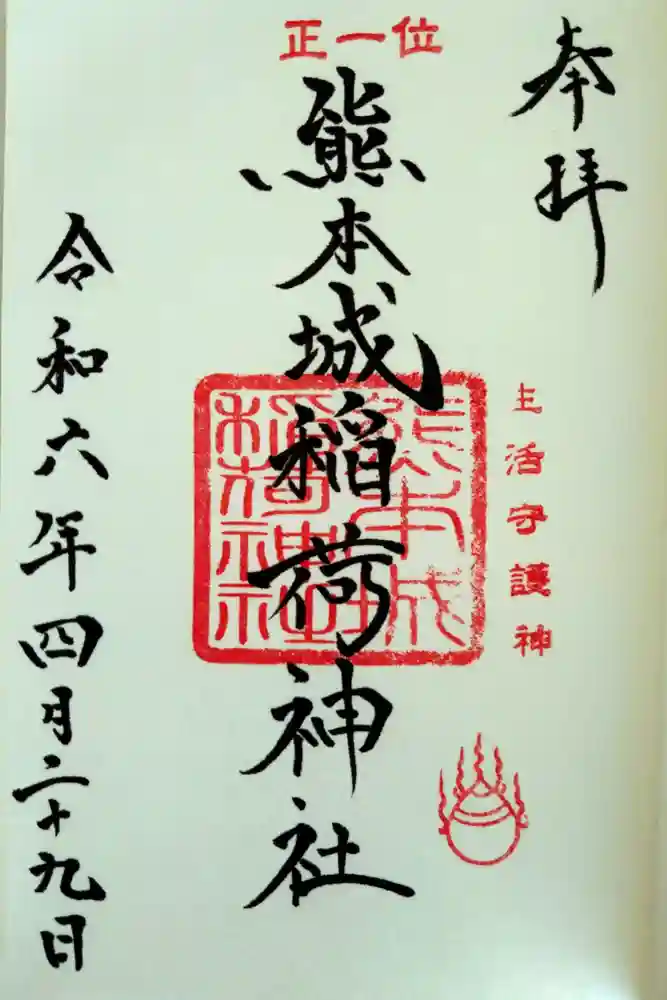 奉拝
正一位
生活守護神
熊本城稲荷神社
熊本城
稲荷神社
令和六年四月二十九日